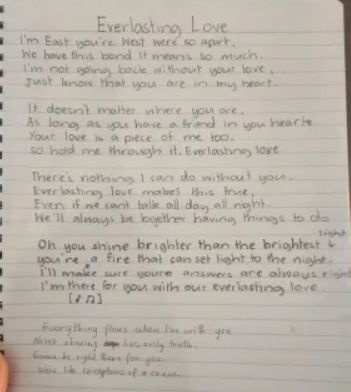 Everlasting Love
I'm East you're West were so apart,
We have this bond it means so much.
I'm not going back without your love,
Just know that you are in my heart.
It doesn't matter where you are,
As long as you have a friend in you hearts
Your love is a piece of me too.
so hold me through it. Everlasting love
There's nothing I can do without you.
Everlasting love makes this true,
Even if we cant talk all day all night.
We'll always be together having things to do
Oh you shine brighter than the brightest light
you're a fire that can set light to the night.
I'll make sure youre answers are always right
I'm there for you with our everlasting love.
[♪♫]
Everything flows when I'm with you
Never sharing lies only truth.
Gonna be right there for you
Were like of a crew.